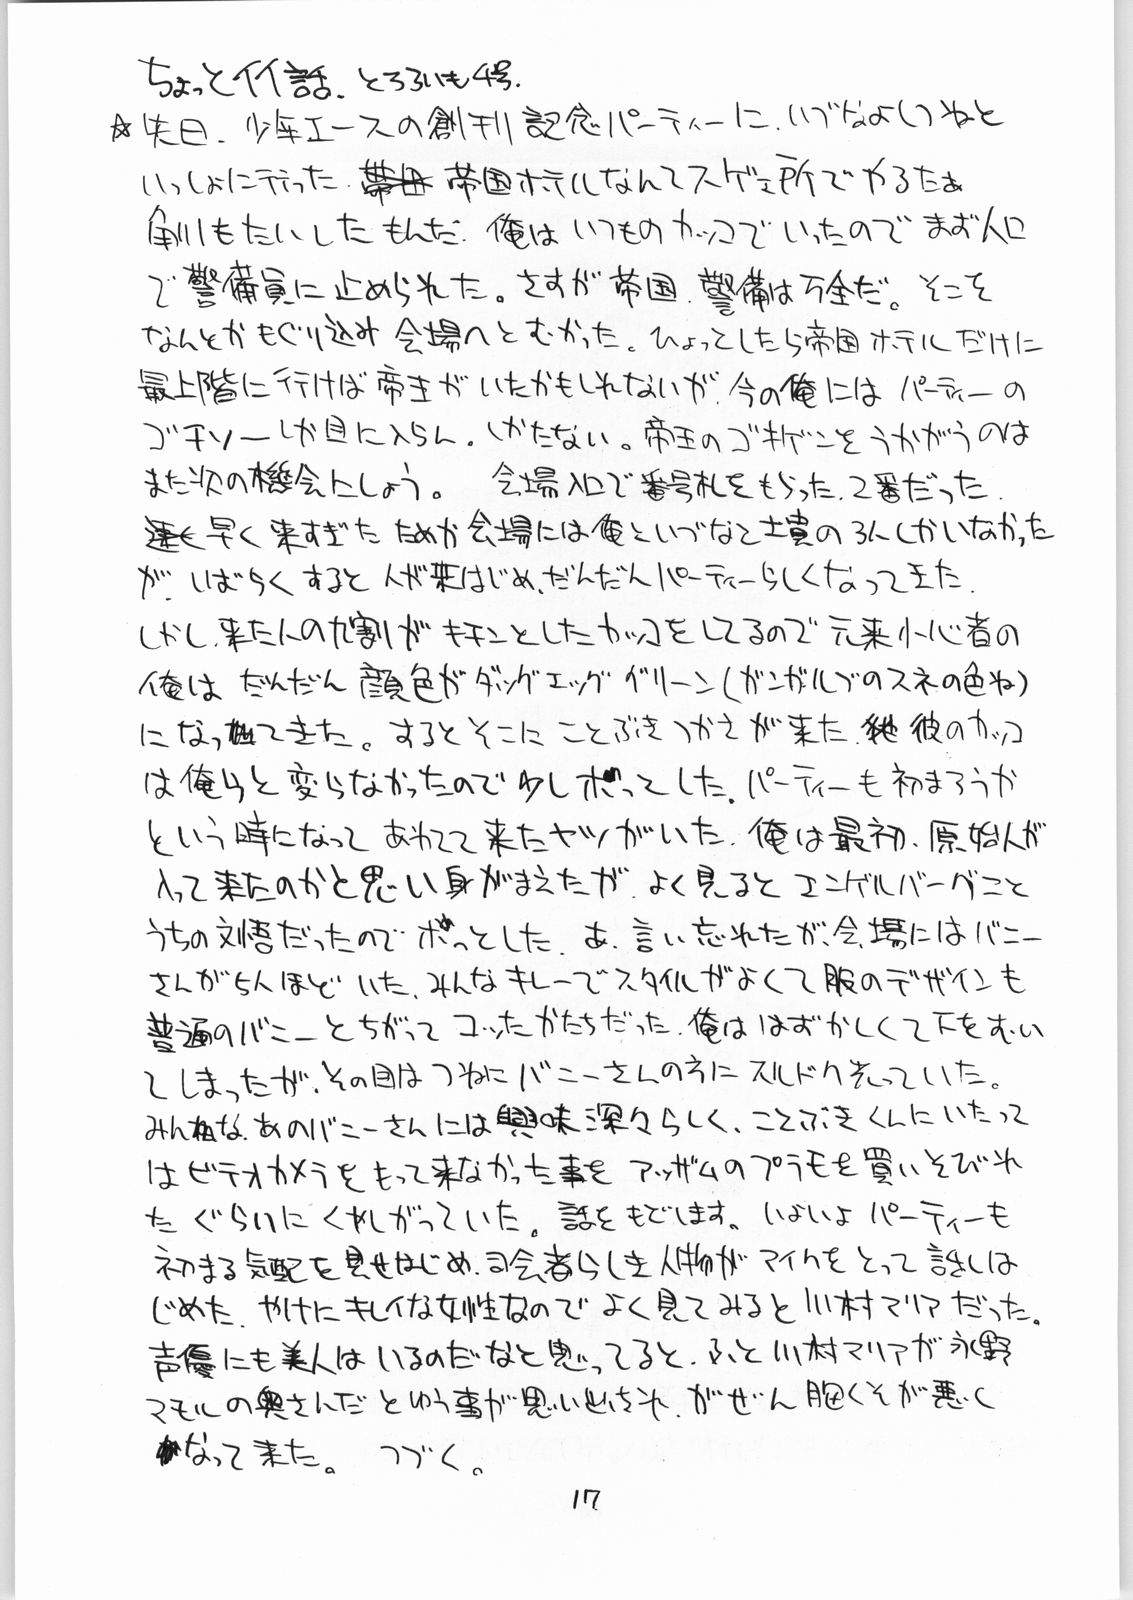 ちょっとイイ話、とろろいも4号.
☆先日、少年エースの創刊記念パーティーに、いづなよしつねと
いっしょに行った、帝国ホテルなんてスゲェ所でやるたぁ
角川もたいしたもんだ. 俺はいつものカッコでいったのでまず入口
で警備員に止められた。さすが帝国、警備は万全だ。そこを
なんとかもぐり込み会場へとむかった。ひょっとしたら帝国ホテルだけに
最上階に行けば帝王がいたかもしれないが、今の俺にはパーティーの
ゴチソーしか目に入らん、しかたない。帝王のゴキゲンをうかがうのは
また次の機会にしよう。 会場入口で番号札をもらった、2番だった.
早く来すぎたためか会場には俺といづなと士貴の3人しかいなかった
が、しばらくすると人が来はじめ、だんだんパーティーらしくなってきた.
しかし、来た人の九割がキチンとしたカッコをしてるので元来小心者の
俺はだんだん顔色がダックエッググリーン(ガンガルブのスネの色ね)
になってきた。するとそこにことぶきつかさが来た、彼のカッコ
は俺らと変らなかったので少しホッとした. パーティーも初まろうか
という時になってあわてて来たヤツがいた、俺は最初、原始人が
入って来たのかと思い身がまえたが、よく見るとエンゲルバーグこと
うちの刘悟だったのでホッとした、あ、言い忘れたが、会場にはバニー
さんが5人ほどいた、みんなキレーでスタイルがよくて服のデザインも
普通のバニーとちがってコッたかたちだった、俺ははずかしくて下をむい
てしまったが、その目はつねにバニーさんの方にスルドク光っていた。
みんな、あのバニーさんには興味深々らしく、ことぶきくんにいたって
はビデオカメラをもって来なかった事をアッザムのプラモを買いそびれ
たぐらいにくやしがっていた。話をもどします。いよいよパーティーも
初まる気配を見せはじめ、司会者らしき人物がマイクをとって話しは
じめた、やけにキレイな女性なのでよく見てみると川村マリアだった。
声優にも美人はいるのだなと思ってると、ふと川村マリアが永野
マモルの奥さんだとゆう事が思い出され、がぜん胸くそが悪く
なって来た。 つづく。
17